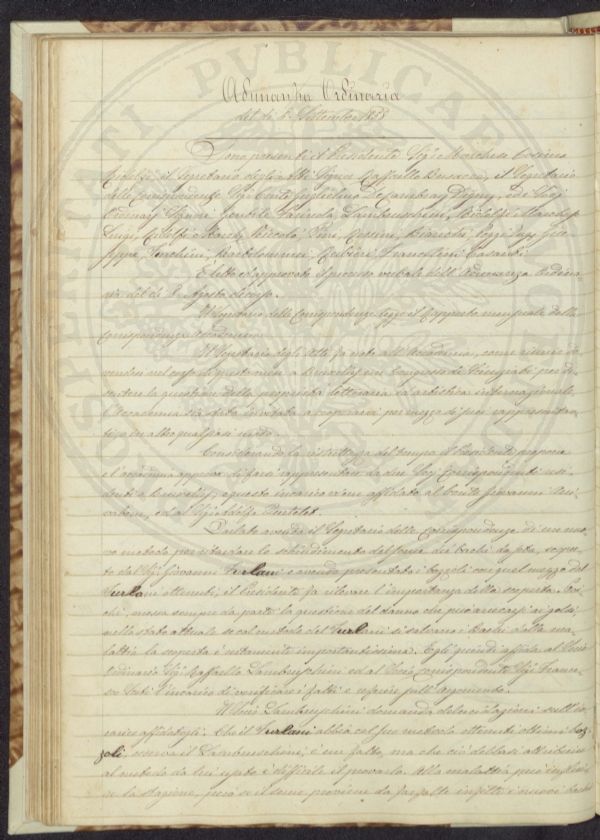 Adunanza Ordinaria
del dì 5 Settembre 1858
Sono presenti il Presidente Sig.e Marchese Cosimo
Ridolfi, il Segretario degli Atti Signor Raffaello Busacca, il Segretario
delle Corrispondenze Sig. Conte Guglielmo De Cambray Digny, ed i Socj
Gentile Farinola, Lambruschini, Ridolfi Marchese
Luigi, Ridolfi Niccolò, Bianchi, Poggi Giu-
seppe, Bartolommei, Rubieri, Franceschini
È letto ed approvato il processo verbale dell'Adunanza Ordina-
ria del dì Agosto
Il Segretario delle Corrispondenze legge il Rapporto mensuale della
corrispondenza Accademica.
Il Segretario degli Atti fa noto all'Accademia, come
nel corso di a Bruxelles un Congresso per di-
scutere la questione della proprietà letteraria ed artistica internazionale,
l'Accademia sia stata invitata a per mezzo di suoi rappresentan-
ti o in altro qualsiasi modo.
Considerando la ristrettezza del tempo il Presidente propone
e l'accademia approva di farsi rappresentare da due Socj Corrispondenti
a Bruxelles, e questo incarico viene affidato al Conte Giovanni Arri-
vabene, ed al Sig.
Parlato avendo il Segretario delle corrispondenze di un nuo-
vo metodo per ritardare lo schiudimento del seme dei bachi da seta,
to dal Sig. Giovanni Furlani e avendo presentato i bozzoli con quel mezzo dal
Furlani ottenuti, il Presidente fa rilevare l'importanza della scoperta. Poi-
chè, messa sempre da parte la questione del danno che può arrecarsi ai gelsi
nello stato attuale se col metodo del Furlani si salvano i bachi dalla ma-
lattia la scoperta è certamente importantissima. Egli quindi affida al Socio
Ordinario Sig. Raffaello Lambruschini ed al Socio corrispondente Sig. France-
sco l'incarico di verificare i fatti e riferire sull'argomento.
Il Socio Lambruschini domanda delucidazioni sull'in-
carico affidatogli. Che il Furlani abbia col suo metodo ottenuti ottimi boz-
zoli, osserva il Lambruschini, è un fatto, ma che ciò debbasi attribuire
al metodo da lui usato è difficile il provarlo. Alla malattia può influi-
re la stagione, può se il seme proviene da farfalle infette i nuovi bachi